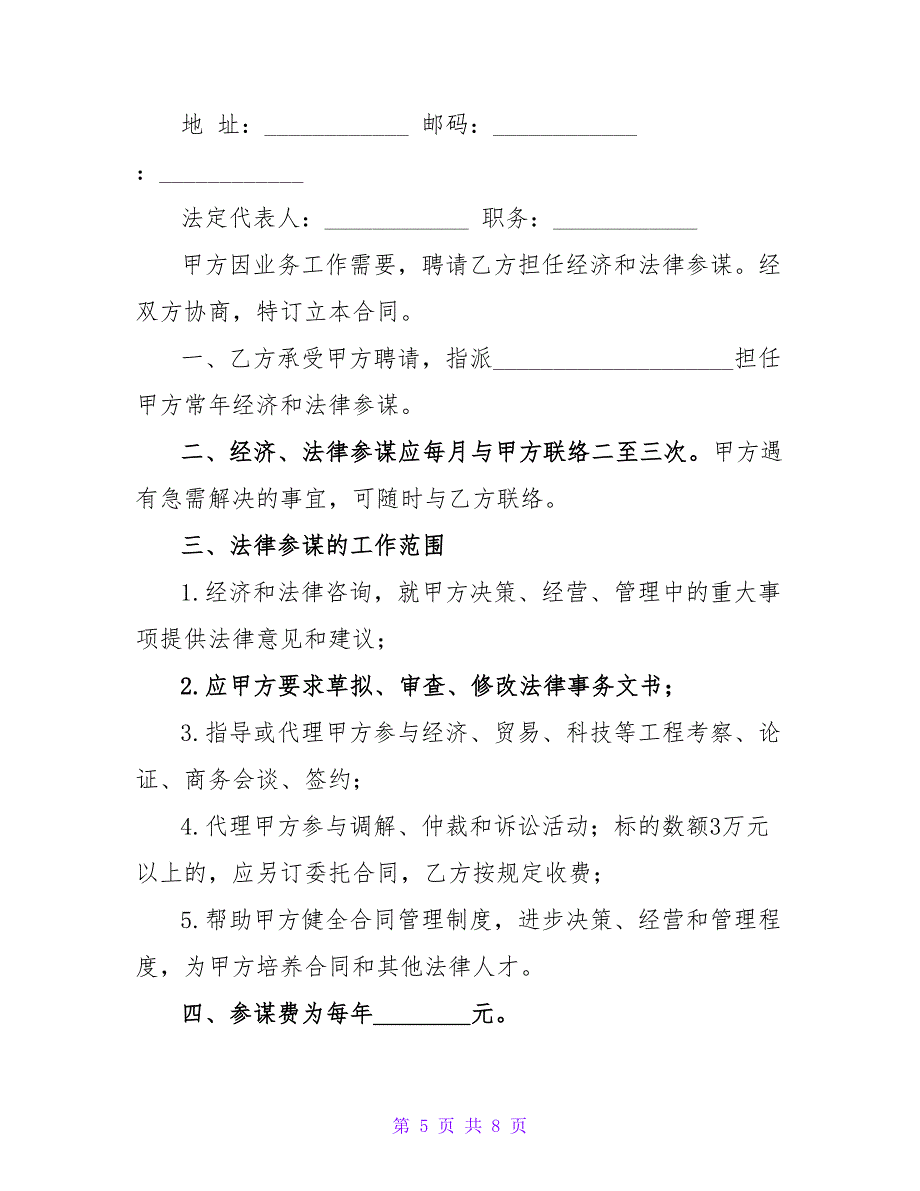 地 址：____________ 邮码：____________
：____________
法定代表人：____________ 职务：____________
甲方因业务工作需要，聘请乙方担任经济和法律参谋。经
双方协商，特订立本合同。
一、乙方承受甲方聘请，指派____________________担任
甲方常年经济和法律参谋。
二、经济、法律参谋应每月与甲方联络二至三次。甲方遇
有急需解决的事宜，可随时与乙方联络。
三、法律参谋的工作范围
1.经济和法律咨询，就甲方决策、经营、管理中的重大事
项提供法律意见和建议；
2.应甲方要求草拟、审查、修改法律事务文书；
3.指导或代理甲方参与经济、贸易、科技等工程考察、论
证、商务会谈、签约；
4.代理甲方参与调解、仲裁和诉讼活动；标的数额3万元
以上的，应另订委托合同，乙方按规定收费；
5.帮助甲方健全合同管理制度，进步决策、经营和管理程
度，为甲方培养合同和其他法律人才。
四、参谋费为每年________元。
第 5 页 共 8 页